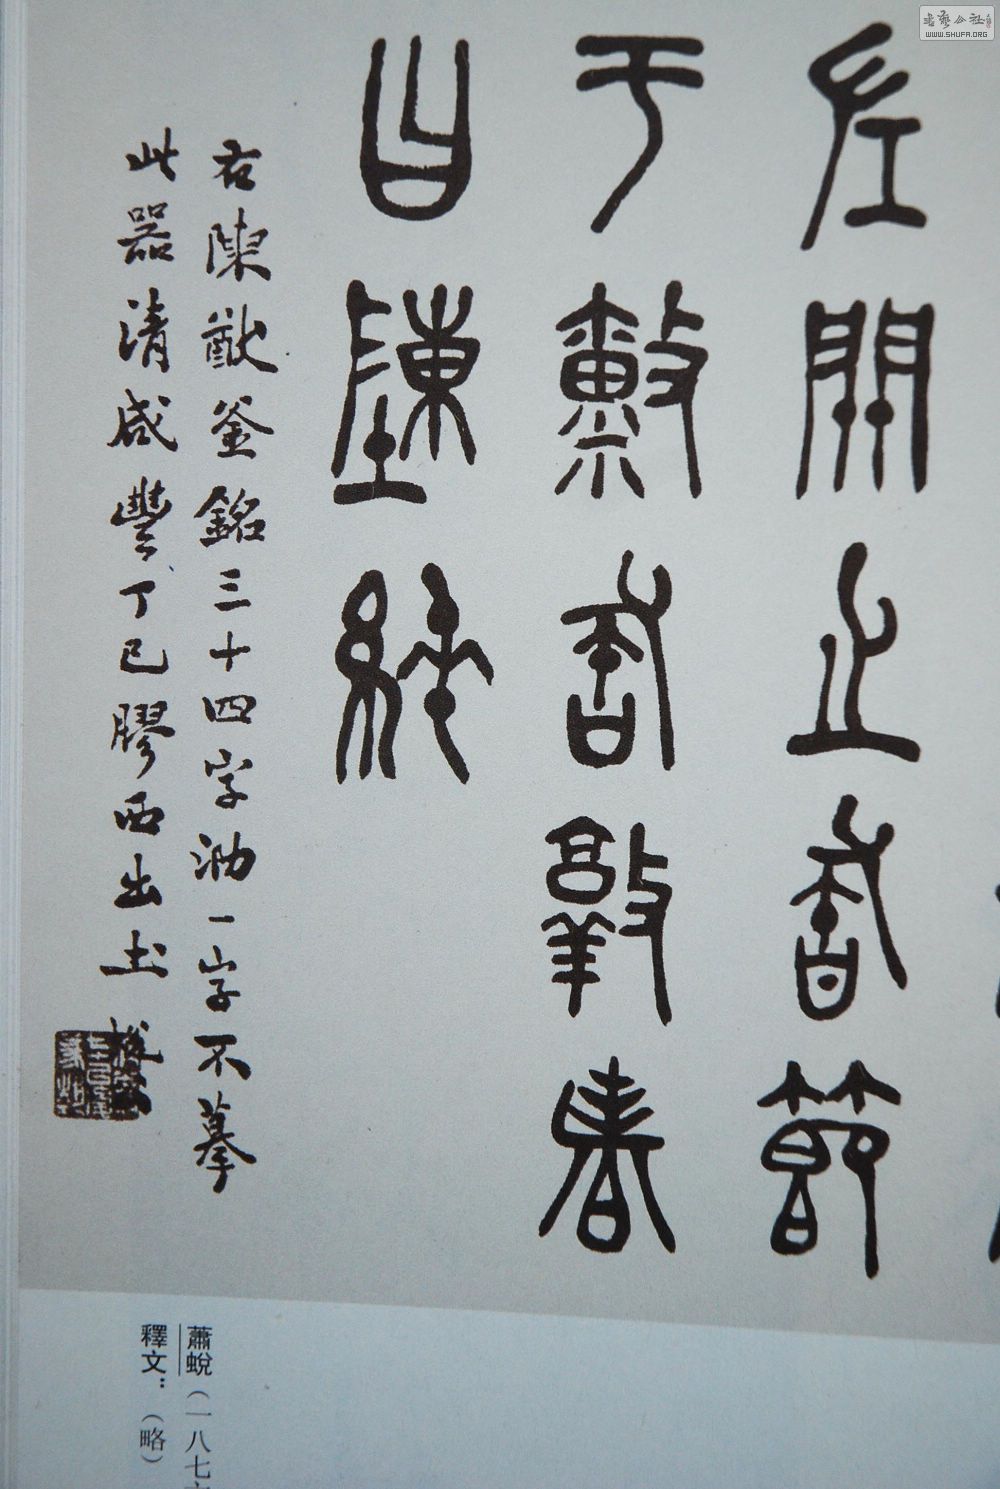 書藝公社
WWW.SHUFA.ORG
左關之釜節
于廩釜敦者
曰陳純
右陳猷釜銘三十四字泐一字不摹
此器清咸豐丁巳膠西出土
蕭蛻（一八七
釋文：（略）